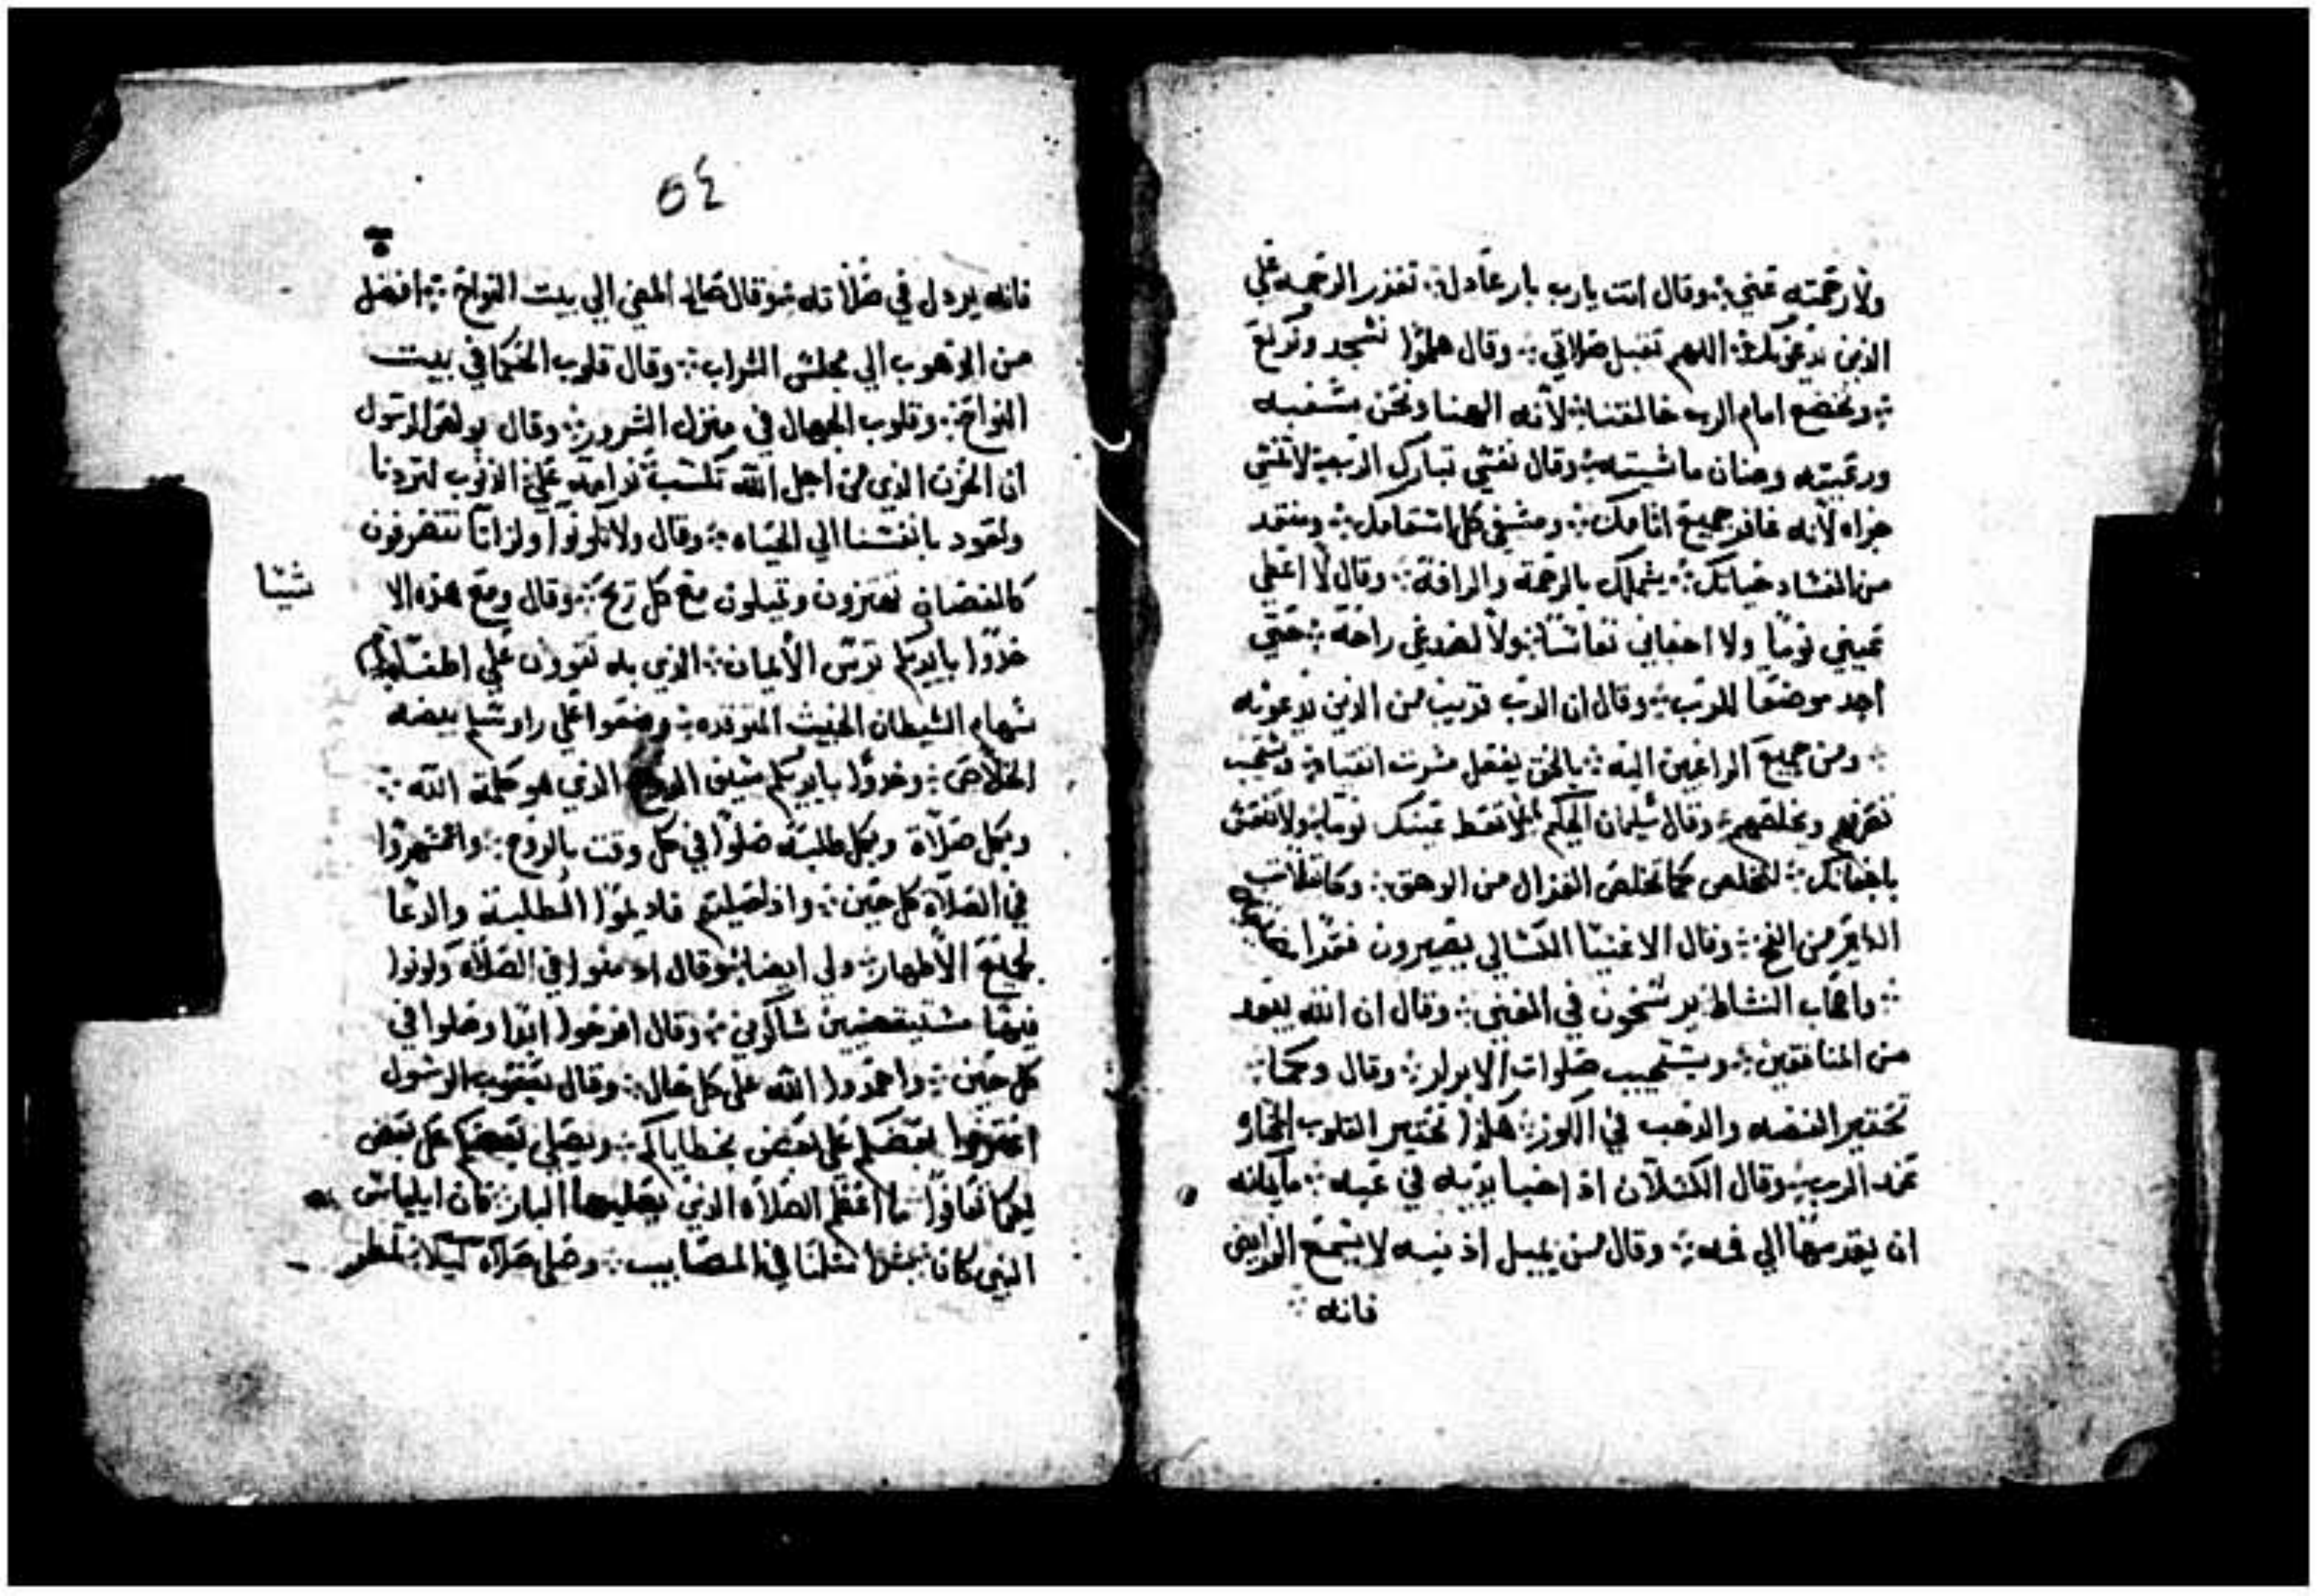 ولا رحمته عني ۞ وقال انت يارب بار عادل ۞ تغزر الرحمه علي
الذين يدعونك ۞ اللهم تقبل صلاتي ۞ وقال هلموا نسجد ونركع
۞ ونخضع امام الرب خالقنا ۞ لانه الهنا ونحن شعبه
ورعيته وضان ماشيته ۞ وقال نفسي تبارك الرب ۞ لا تنسي
جزاه لانه غافر جميع اثامك ۞ ومشفي كل اسقامك ۞ ومنقد
من الفساد حياتك ۞ يشملك بالرحمة والرافة ۞ وقال لا اعطي
عيني نوما ولا اجفاني نعاسا ۞ ولا لصدغي راحة ۞ حتي
اجد موضعا للرب ۞ وقال ان الرب قريب من الذين يدعونه
۞ ومن جميع الراغبين اليه ۞ بالحق يفعل مسرت اتقياه ۞ ويستجيب
تضرعهم ويخلصهم ۞ وقال سليمان الحكيم لا تعط عينك نوما ۞ ولا تنعس
باجفانك ۞ لتخلص كما تخلص الغزال من الوهق ۞ وكانفلات
الطاير من الفخ ۞ وقال الاغنيا الكسالي يصيرون فقرا
۞ واصحاب النشاط يرسخون في الغني ۞ وقال ان الله يبعد
من المنافقين ۞ ويستجيب صلوات الابرار ۞ وقال وكما
تختبر الفضه والذهب في الكور ۞ هكذا تختبر القلوب المختاره
عند الرب ۞ وقال الكسلان اذ اخبا يديه في عبه ۞ ما يمكنه
ان يقدمها الي فمه ۞ وقال من يميل اذنيه لا يسمع النواميس
فانه ۞
٥٤
فانه يردل في صلاته ۞ وقال صالح المضي الي بيت النواح ۞ افضل
من الذهوب الي مجلس الشراب ۞ وقال قلوب الحكما في بيت
النواح ۞ وقلوب الجهال في منزل السرور ۞ وقال بولص الرسول
ان الحزن الذي من اجل الله تكسب ندامه علي الذنوب لتردنا
وتقود بانفسنا الي الحياه ۞ وقال ولا تكونوا ولدانا تتصرفون
كالغضان تهتزون وتميلون مع كل ريح ۞ وقال ومع هذه الا
شيا
خدوا بايديكم ترس الايمان ۞ الذي به تقوون علي اطفا
سهام الشيطان الخبيث المتوقده ۞ وضعوا علي راوسكم بيضه
الخلاص ۞ وخدوا بايديكم سيف الروح الذي هو كلمة الله ۞
وبكل صلاة وبكل طلبة صلوا في كل وقت بالروح ۞ واسهروا
في الصلاه كل حين ۞ واذ اصليتم فاديموا الطلبة والدعا
لجميع الاطهار ۞ ولي ايضا ۞ وقال ادمنوا في الصلاه وكونوا
فيها مستيقضيين شاكرين ۞ وقال افرحوا ابدا وصلوا في
كل حين ۞ واحمدوا الله علي كل حال ۞ وقال يعقوب الرسول
اعترفوا بعضكم علي بعض بخطاياكم ۞ ويصلي بعضكم علي بعض
ليكما تعافوا ما اعظم الصلاه الذي يصليها البار ۞ كان ايلياس
النبي كان بشرا مثلنا في المصايب ۞ وصلي صلاه كيلا تمطر